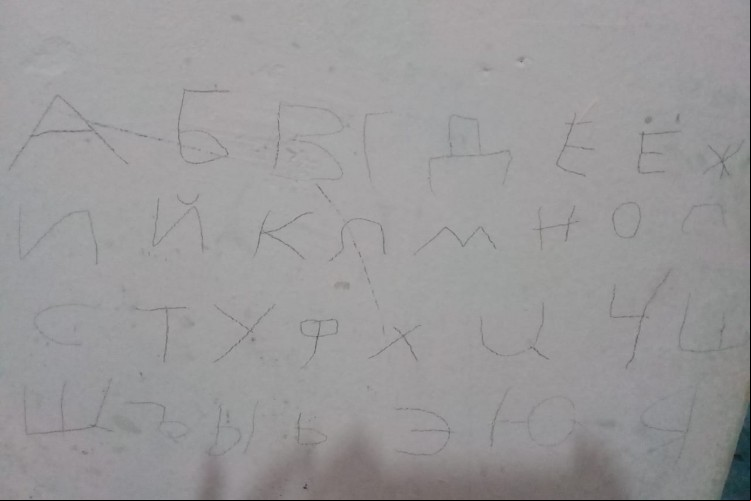 А Б В Г Д Е Ё Ж
И Й К Л М Н О П
С Т У Ф Х Ц Ч Ш
Щ Ъ Ы Ь Э Ю Я